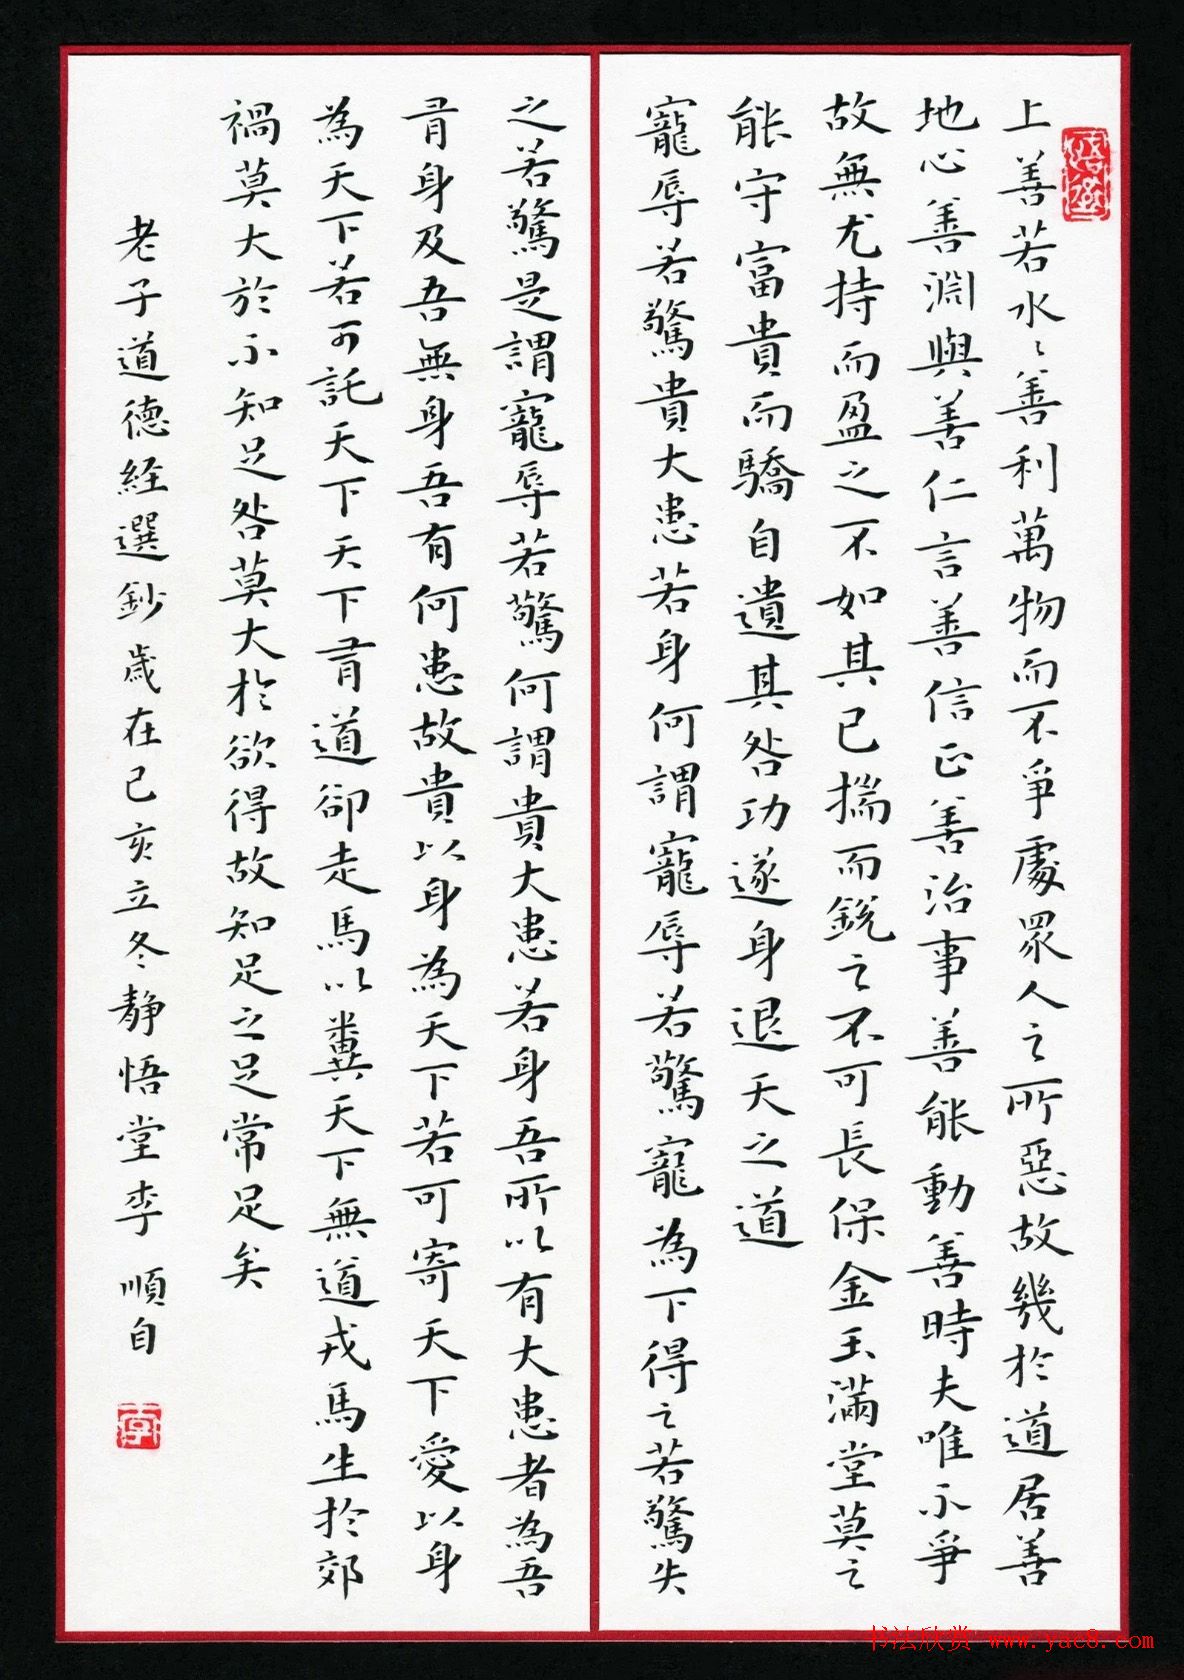 悟堂
上善若水〻善利萬物而不爭處眾人之所惡故幾於道居善
地心善淵與善仁言善信正善治事善能動善時夫唯不爭
故無尤持而盈之不如其已揣而銳之不可長保金玉滿堂莫之
能守富貴而驕自遺其咎功遂身退天之道
寵辱若驚貴大患若身何謂寵辱若驚寵為下得之若驚失
之若驚是謂寵辱若驚何謂貴大患若身吾所以有大患者為吾
有身及吾無身吾有何患故貴以身為天下若可寄天下愛以身
為天下若可託天下天下有道卻走馬以糞天下無道戎馬生於郊
禍莫大於不知足咎莫大於欲得故知足之足常足矣
老子道德経選鈔歲在己亥立冬靜悟堂李順自
李
书法欣赏 www.yac8.com